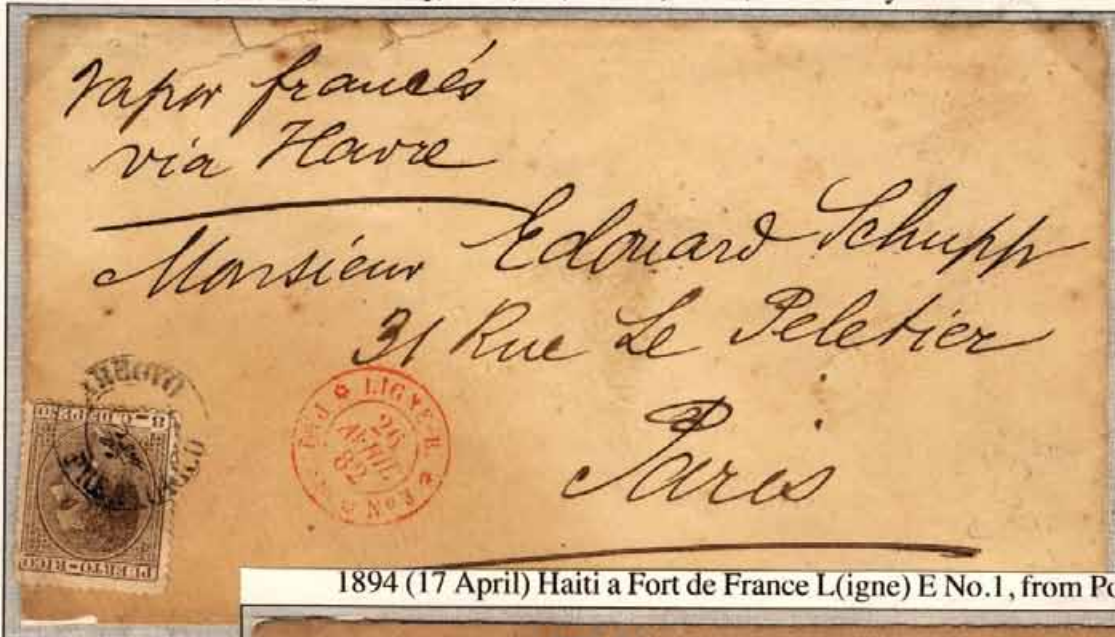 Vapor francés
via Havre
Monsieur Edouard Schupp
31 Rue Le Peletier
Paris
ARROYO
8-C. DE PESO
PUERTO-RICO
LIGNE
26
AVRIL
82
1894 (17 April) Haiti a Fort de France L(igne) E No.1, from